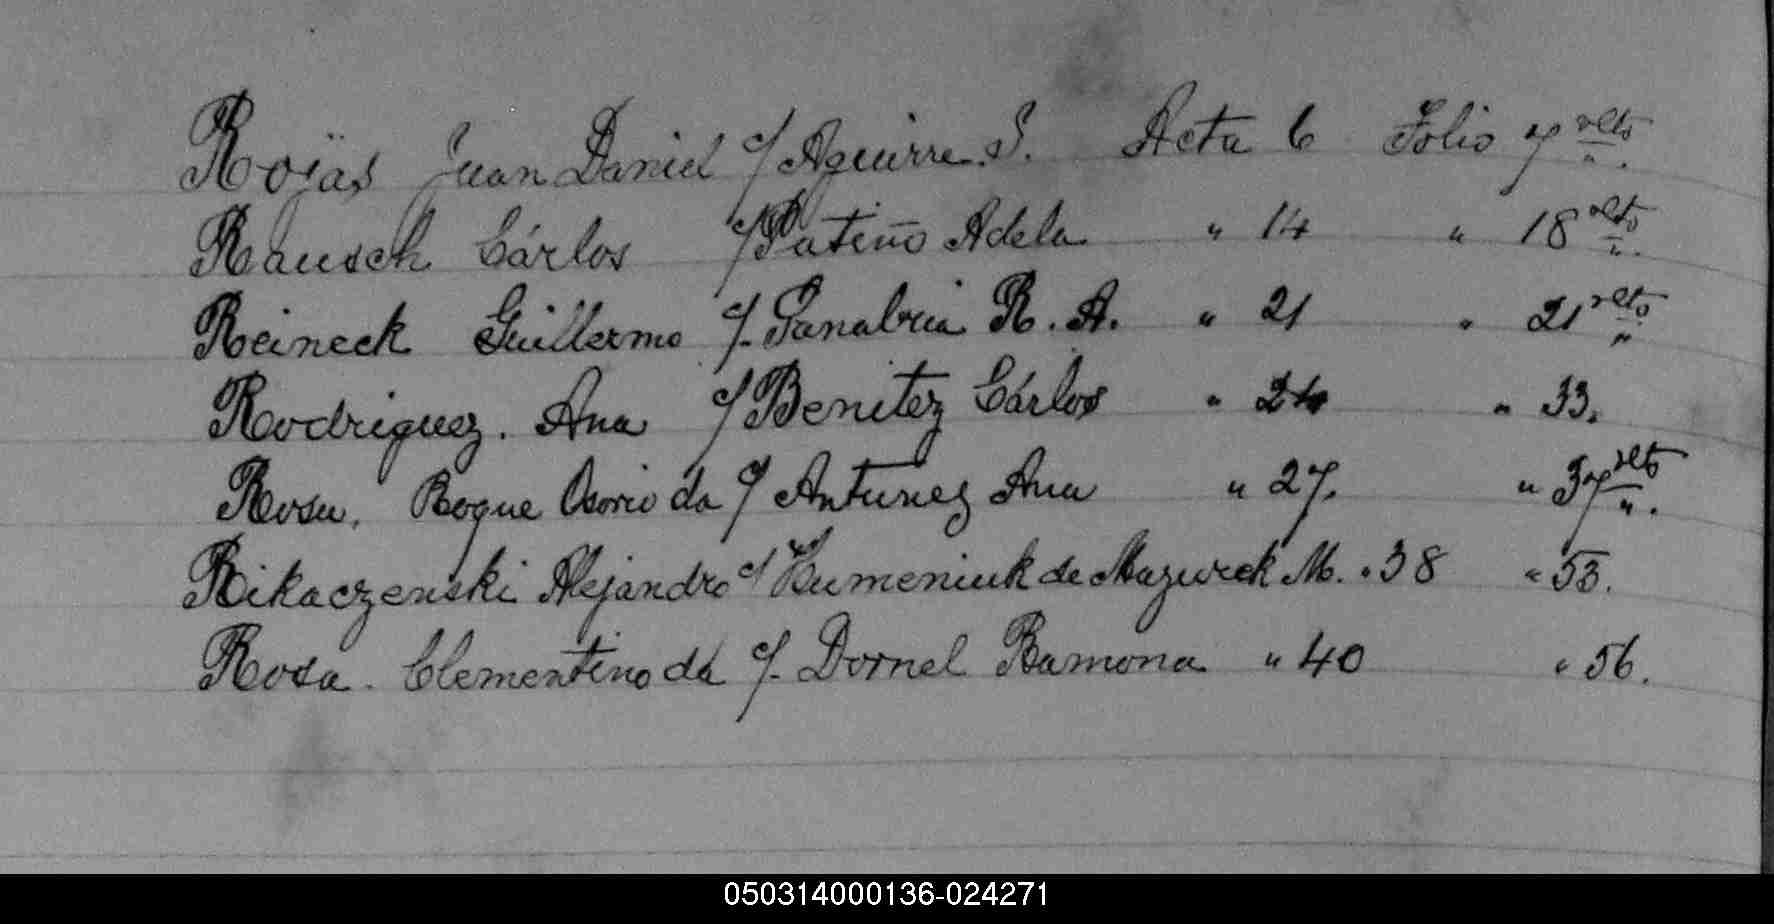 Rojas Juan Daniel c/ Aguirre S. Acta 6 Folio 7 vlto
Rausch Cárlos c/ Patiño Adela " 14 " 18 vlto
Reineck Guillermo c/. Sanabria R. A. " 21 " 21 vlto
Rodriguez. Ana c/ Benitez Cárlos " 24 " 33.
Rosa. Roque Osorio da c/ Antunez Ana " 27. " 37 vlto.
Rikaczenski Alejandro c/ Humeniuk de Mazurek M. " 38 " 53.
Rosa. Clementino da c/. Dornel Ramona " 40 " 56.
050314000136-024271